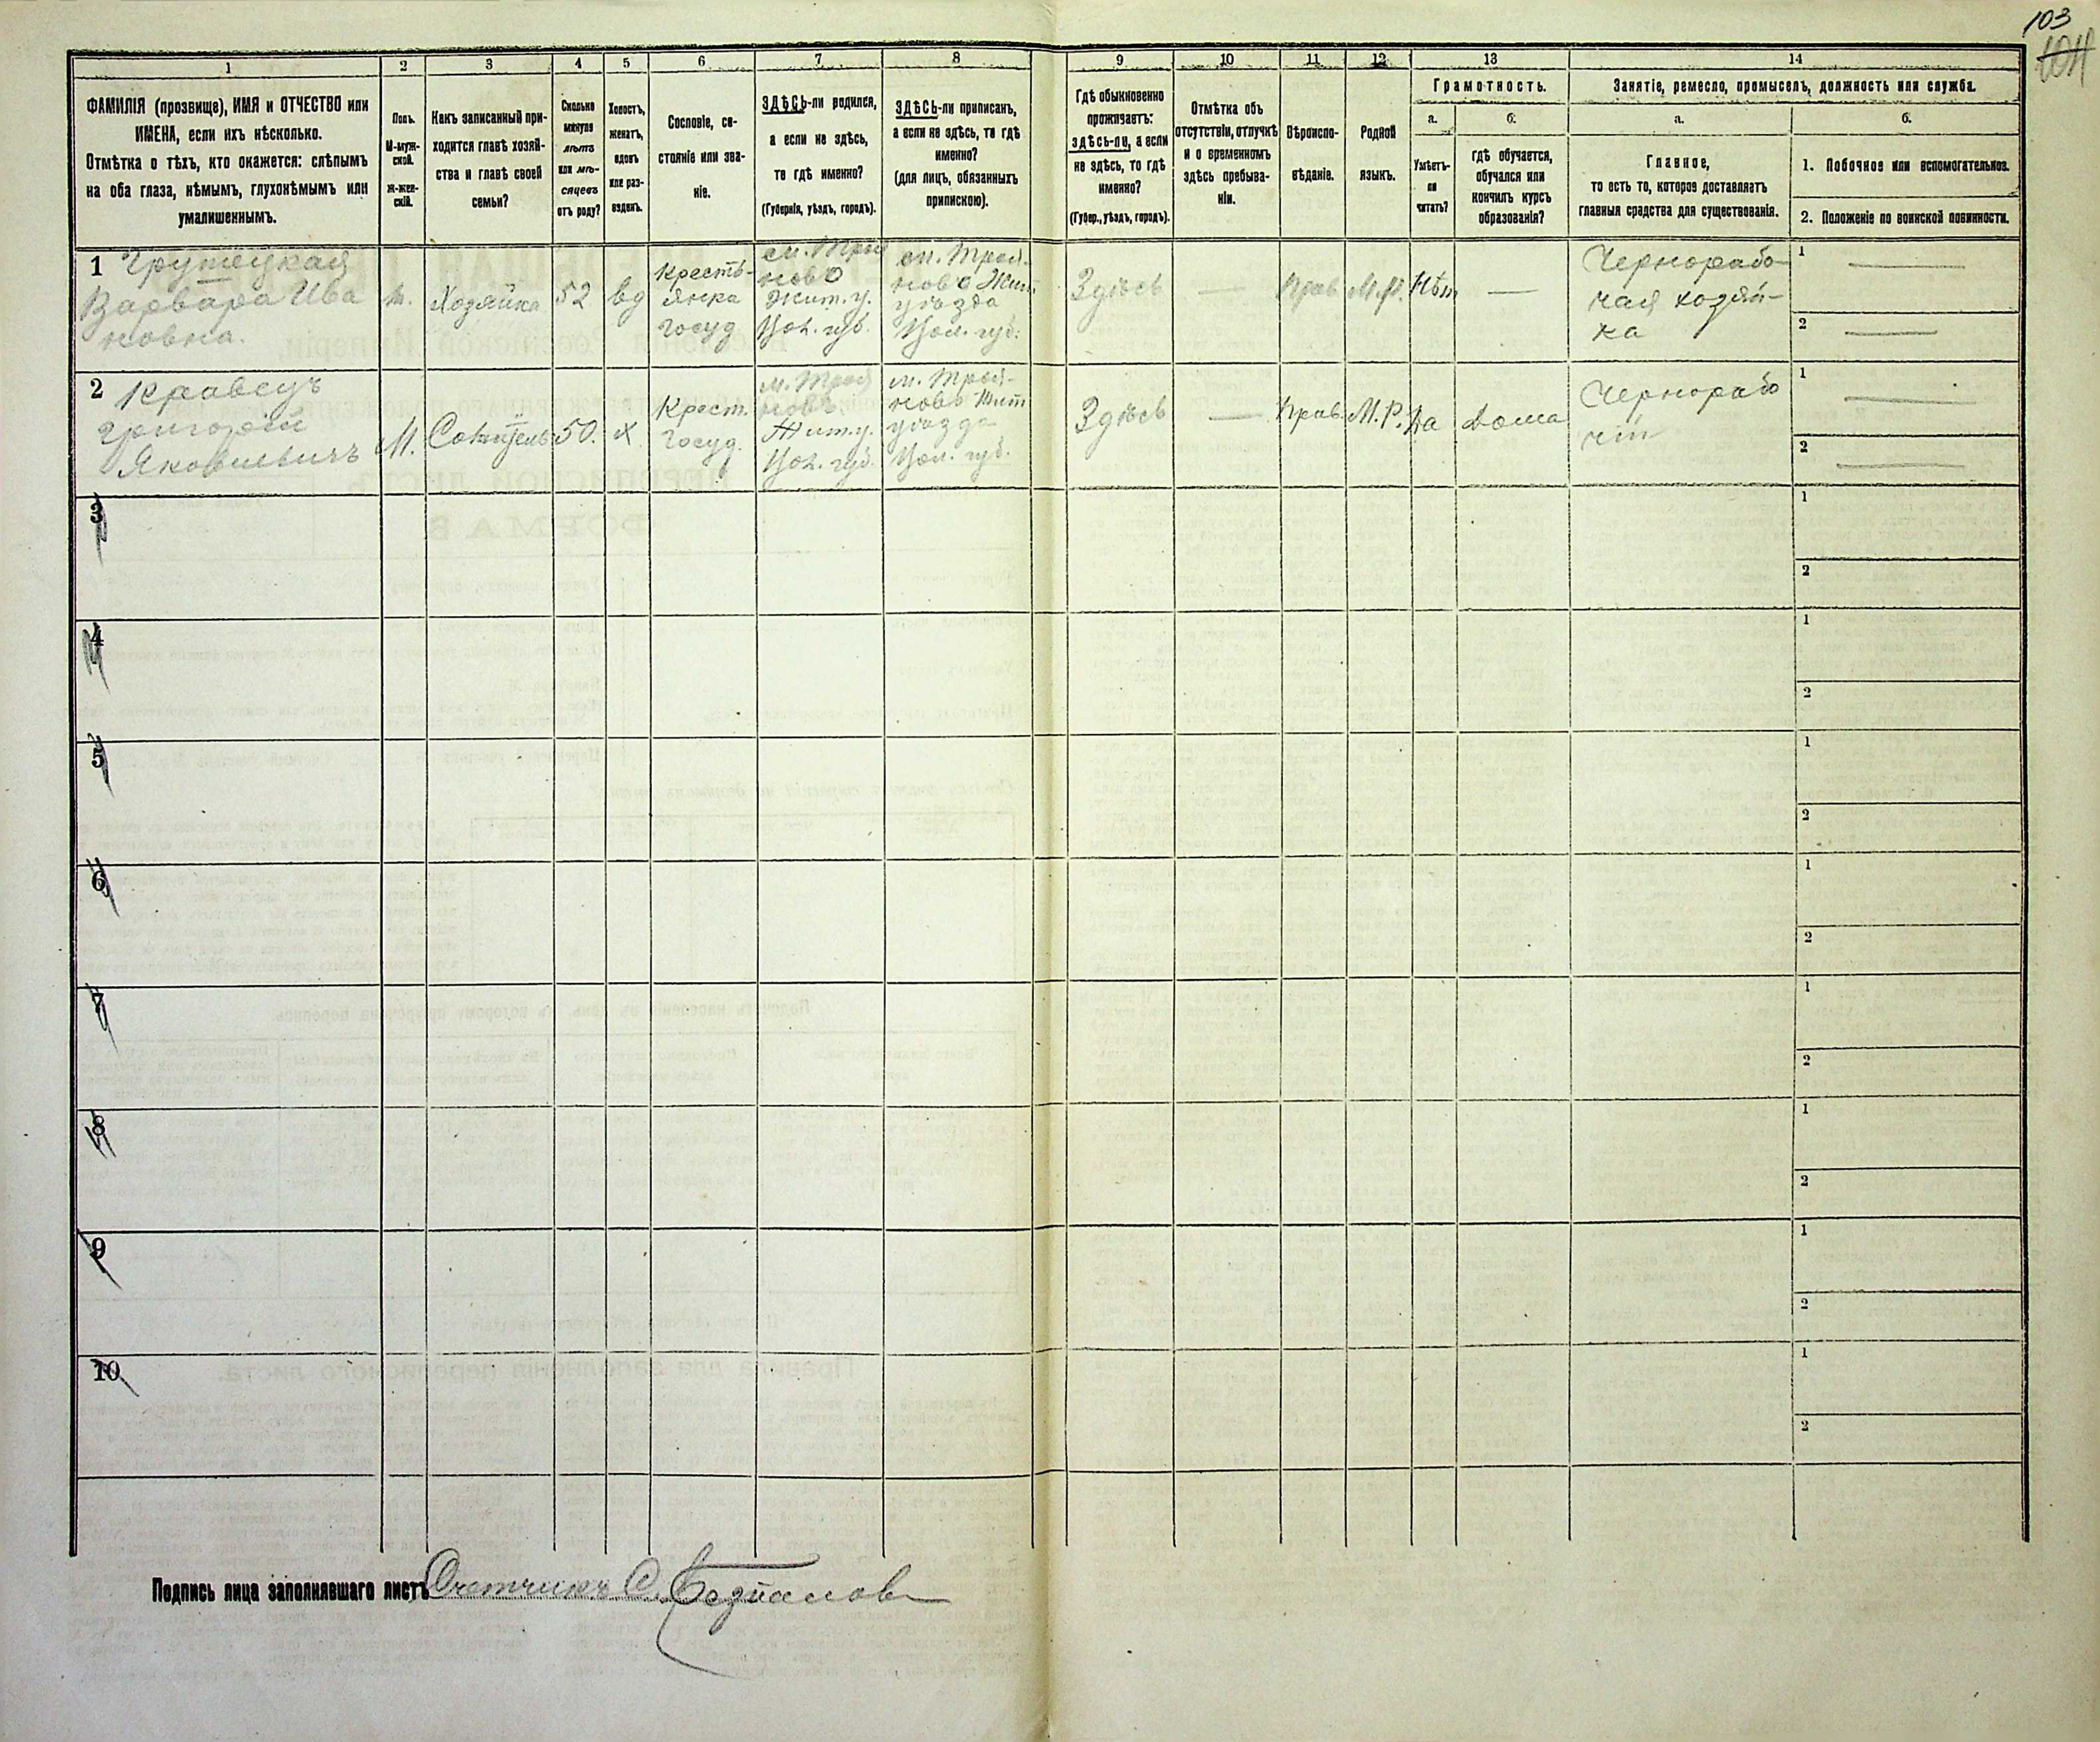 103
1 2 3 4 5 6 7 8 9 10 11 12 13 14
ФАМИЛІЯ (прозвище), ИМЯ и ОТЧЕСТВО или
ИМЕНА, если ихъ нѣсколько.
Отмѣтка о тѣхъ, кто окажется: слѣпымъ
на оба глаза, нѣмымъ, глухонѣмымъ или
умалишеннымъ.
Полъ.
М-муж-
ской.
Ж-жен-
скій.
Какъ записанный при-
ходится главѣ хозяй-
ства и главѣ своей
семьи?
Сколько
минуло
лѣтъ
или мѣ-
сяцевъ
отъ роду?
Холостъ,
женатъ,
вдовъ
или раз-
веденъ.
Сословіе, со-
стояніе или зва-
ніе.
ЗДѢСЬ-ли родился,
а если не здѣсь,
то гдѣ именно?
(Губернія, уѣздъ, городъ).
ЗДѢСЬ-ли приписанъ,
а если не здѣсь, то гдѣ
именно?
(для лицъ, обязанныхъ
припискою).
Гдѣ обыкновенно
проживаетъ:
здѣсь-ли, а если
не здѣсь, то гдѣ
именно?
(Губер., уѣздъ, городъ).
Отмѣтка объ
отсутствіи, отлучкѣ
и о временномъ
здѣсь пребыва-
ніи.
Вѣроиспо-
вѣданіе.
Родной
языкъ.
Грамотность.
а.
Умѣетъ-
ли
читать?
б.
гдѣ обучается,
обучался или
кончилъ курсъ
образованія?
Занятіе, ремесло, промыселъ, должность или служба.
а.
Главное,
то есть то, которое доставляетъ
главныя средства для существованія.
б.
1. Побочное или вспомогательное.
2. Положеніе по воинской повинности.
1
Варвара Ива
новна.
Хозяйка
52
вд
Кресть-
янка
Госуд
м. Троя
ново
Жит. у.
Вол. губ.
м. Троя-
ново Жит
уѣзда
Вол. губ.
Здѣсь
—
Прав
М.Р.
Нѣт
—
Чернорабо-
чая хозяй-
ка
1 —
2 —
2 Кравецъ
Григорій
Яковлевичъ
М.
50.
х
Крест.
Госуд.
м. Троя
новъ
Жит. у.
Вол. губ.
м. Троя-
ново Жит
уѣзда
Вол. губ.
Здѣсь
—
Прав.
М.Р.
Да
Дома
Чернорабо
чій
1 —
2 —
3
1
2
4
1
2
5
1
2
6
1
2
7
1
2
8
1
2
9
1
2
10
1
2
Подпись лица заполнявшаго листъ Счетчикъ С.